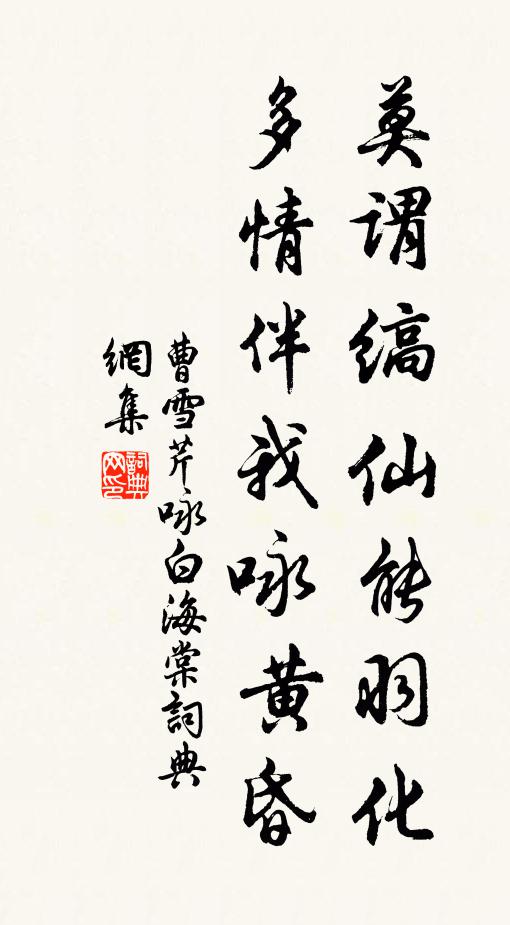 莫謂縞仙能羽化
多情伴我咏黃昏
曹雪芹咏白海棠詞典
網集
詞典網印